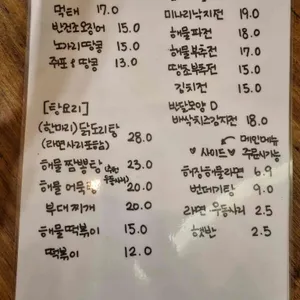 먹태 17.0
반건조오징어 15.0
노가리땅콩 15.0
쥐포 & 땅콩 13.0
[탕요리]
(한마리) 닭도리탕 28.0
(라면사리포함)
해물 짬뽕탕 23.0
해물 어묵탕 20.0
부대찌개 20.0
해물떡볶이 15.0
떡볶이 12.0
미나리낙지전 19.0
해물파전 18.0
해물부추전 17.0
땡초부추전 15.0
김치전 15.0
반달모양 D
배싹치즈감자전 18.0
메인메뉴
주문시가능
♥ 사이드 ♥
해장해물라면 6.9
번데기탕 9.0
라면 우동사리 2.5
햇반 2.5